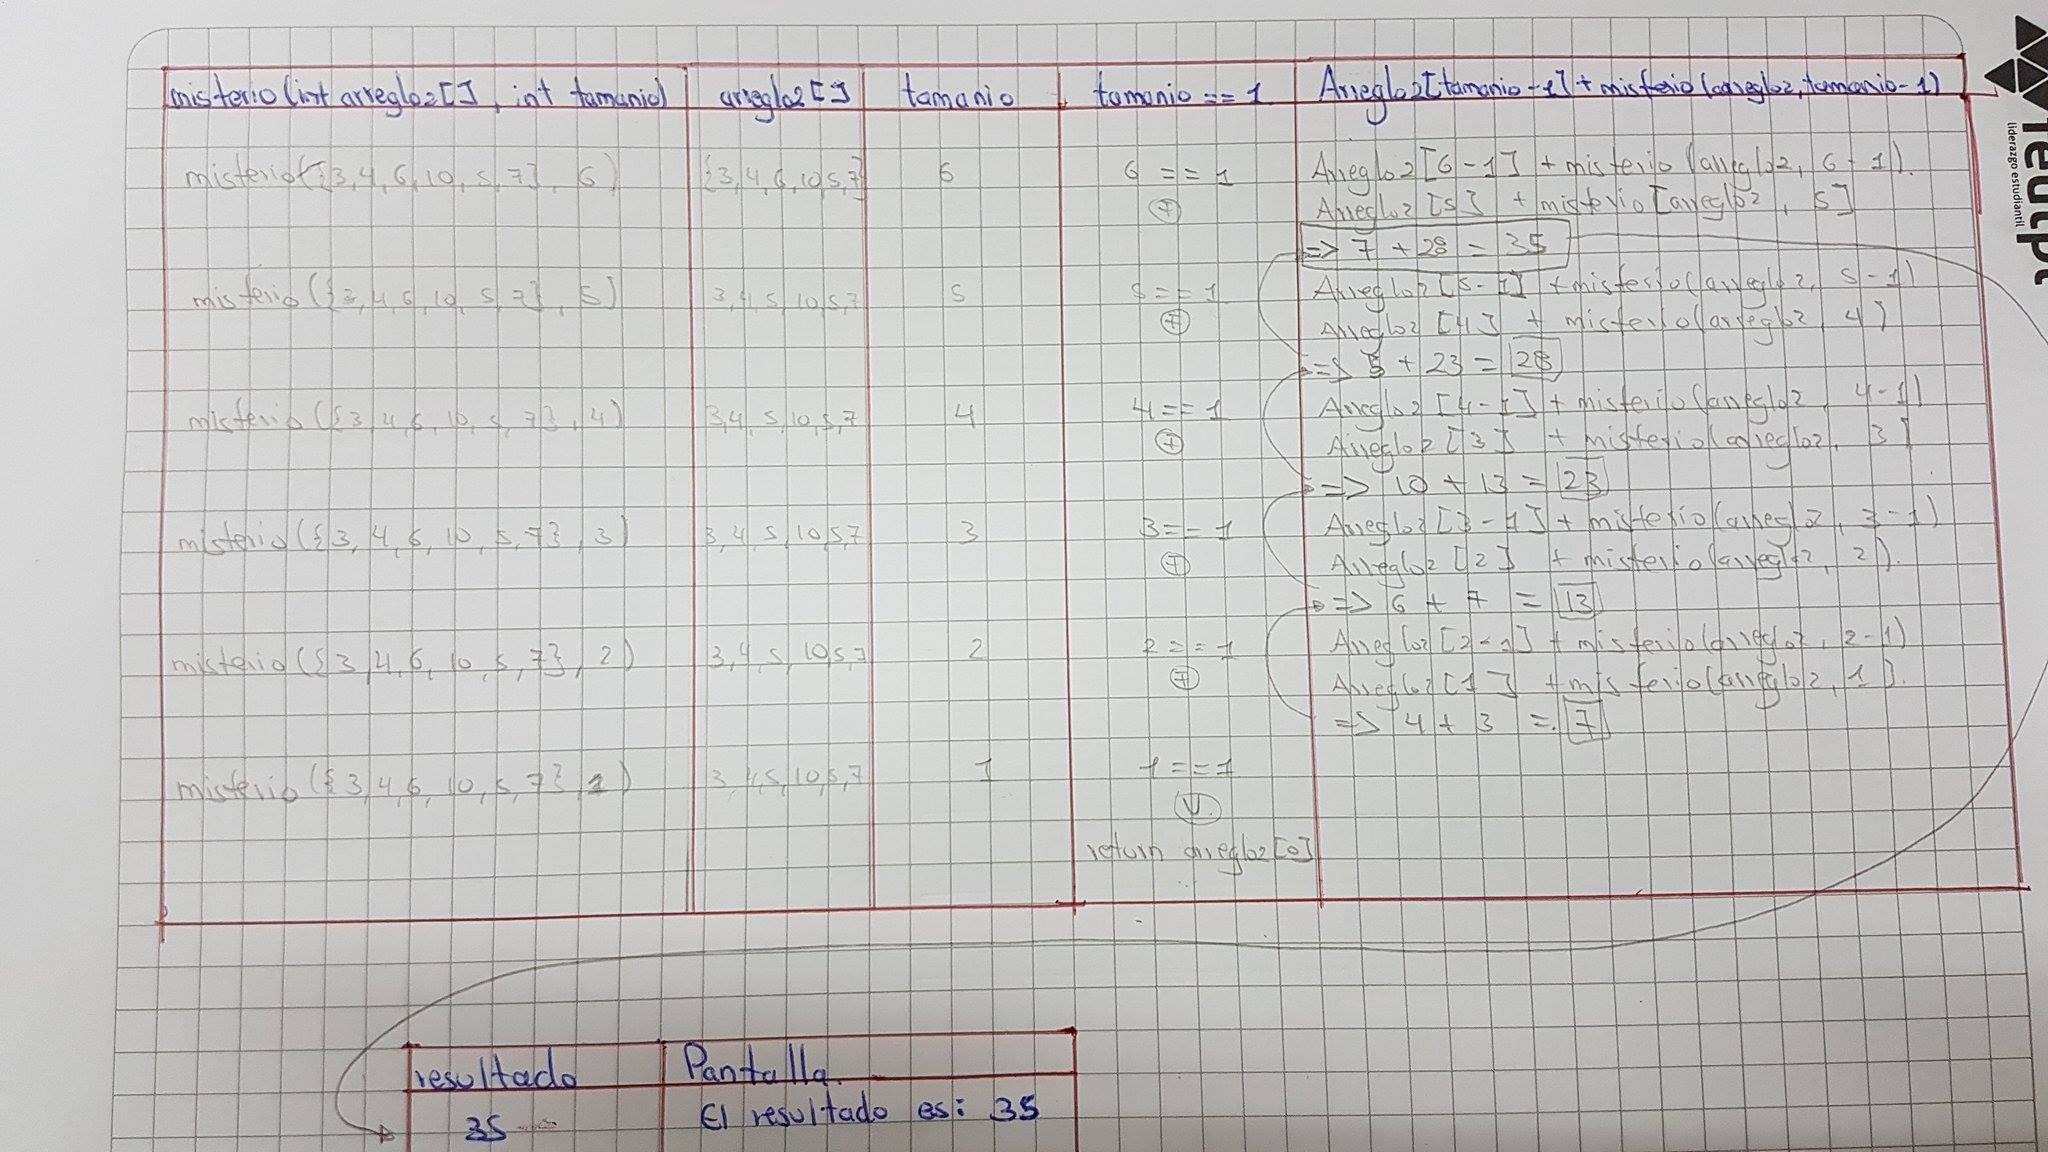 misterio(int arreglo2[], int tamanio) arreglo2[] tamanio tamanio == 1 Arreglo2[tamanio-1] + misterio(arreglo2, tamanio-1)
misterio({3,4,6,10,5,7}, 6) {3,4,6,10,5,7} 6 6 == 1 Arreglo2[6-1] + misterio(arreglo2, 6-1).
F Arreglo2[5] + misterio[arreglo2, 5]
=> 7 + 28 = 35
misterio({3,4,6,10,5,7}, 5] 3,4,5,10,5,7 5 5 == 1 Arreglo2[5-1] + misterio(arreglo2, 5-1)
F Arreglo2[4] + misterio(arreglo2, 4)
=> 5 + 23 = 28
misterio({3,4,6,10,5,7}, 4) 3,4,5,10,5,7 4 4 == 1 Arreglo2[4-1] + misterio(arreglo2, 4-1)
F Arreglo2[3] + misterio(arreglo2, 3]
=> 10 + 13 = 23
misterio({3,4,6,10,5,7}, 3) 3,4,5,10,5,7 3 3 == 1 Arreglo2[3-1] + misterio(arreglo2, 3-1)
F Arreglo2[2] + misterio(arreglo2, 2).
=> 6 + 7 = 13
misterio({3,4,6,10,5,7}, 2) 3,4,5,10,5,7 2 2 == 1 Arreglo2[2-1] + misterio(arreglo2, 2-1)
F Arreglo2[1] + misterio(arreglo2, 1).
=> 4 + 3 = 7
misterio({3,4,6,10,5,7}, 1) 3,4,5,10,5,7 1 1 == 1
V.
return arreglo2[0]
resultado Pantalla.
35 El resultado es: 35
feutpl
liderazgo estudiantil